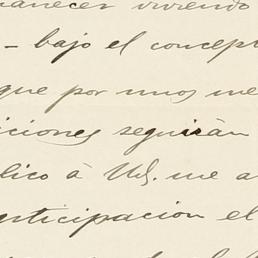 anecer viviendo
- bajo el concept
que por unos me
iciones seguirán
lico á Ud. me a
articipacion el